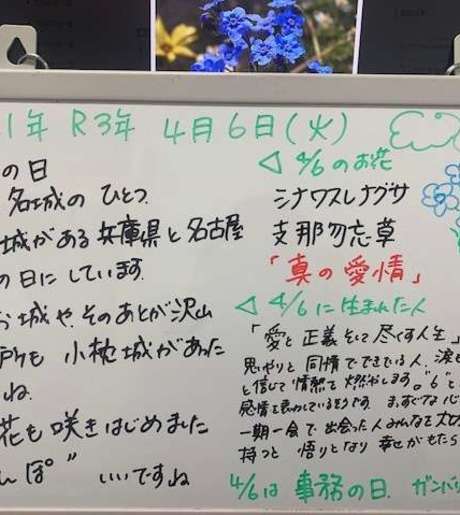 1年 R3年 4月6日(火)
の日
名城の ひとつ
城がある 兵庫県と名古屋
の日にしています.
お城や、そのあとが沢山
戸も 小枕城があった
ね.
花も 咲きはじめました
んぽ" いいですね
◁ 4/6のお花
シナワスレナグサ
支那勿忘草
「真の愛情」
◁ 4/6に生まれた人
「愛と正義そして尽くす人生」
思いやりと 同情でできている人、涙も
と信じて 情熱を 燃やします。"6"と
感情を表わしているそうです. ますぐな心
一期一会で出会った人みんなを大切
持つと 悟りとなり 幸せがもたら
4/6は 事務の日. ガンバリ